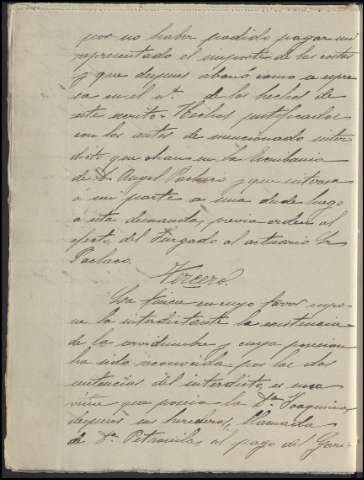 por no haber podido pagar mi
representado el importe de las costas
y que despues abonó como se expre
sa en el nº. de los hechos de
este escrito. Hechos justificados
con los autos de mencionado inter
dicto que obran en la Escribania
de D. Angel Pacheco y que interesa
á mi parte se una desde luego
á esta demanda, previa orden al
efecto, del Juzgado al actuario Sr
Pacheco.
Tercero.
La finca en cuyo favor supo-
ne la interdictante la existencia
de la servidumbre y cuya posesion
ha sido reconocida por las dos
sentencias del interdicto, es una
viña que poseia la Dª Joaquina
despues sus herederos, llamada
de Dª Petronila, al pago del Gari-